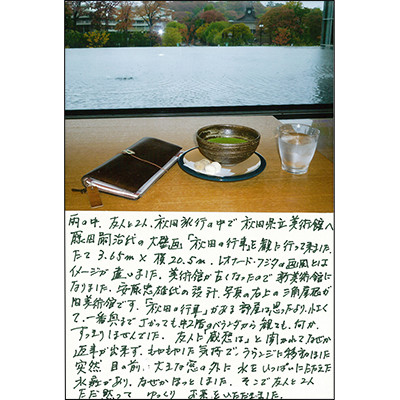 雨の中、友人と2人、秋田旅行の中で秋田県立美術館へ
藤田嗣治氏の大壁画「秋田の行事」を観に行って来ました。
たて3.65m×横20.5m、レオナード・フジタの画風とは
イメージが違いました。美術館が古くなったので新美術館に
なりました。安藤忠雄氏の設計、写真の右上の三角屋根が
旧美術館です。「秋田の行事」がある部屋は思ったより小さく
て、一番奥まで下がっても中2階のベランダから観ても、何か、
すっきりしませんでした。友人に「感想は」と聞かれてなぜか
返事が出来ず、もやもやした気持で、ラウンジに移動しました
突然、目の前、大きな窓の外に水をいっぱいにたたえた
水庭があり、なぜかほっとしました。そこで友人と2人
ただ黙って ゆっくり お茶をいただきました。